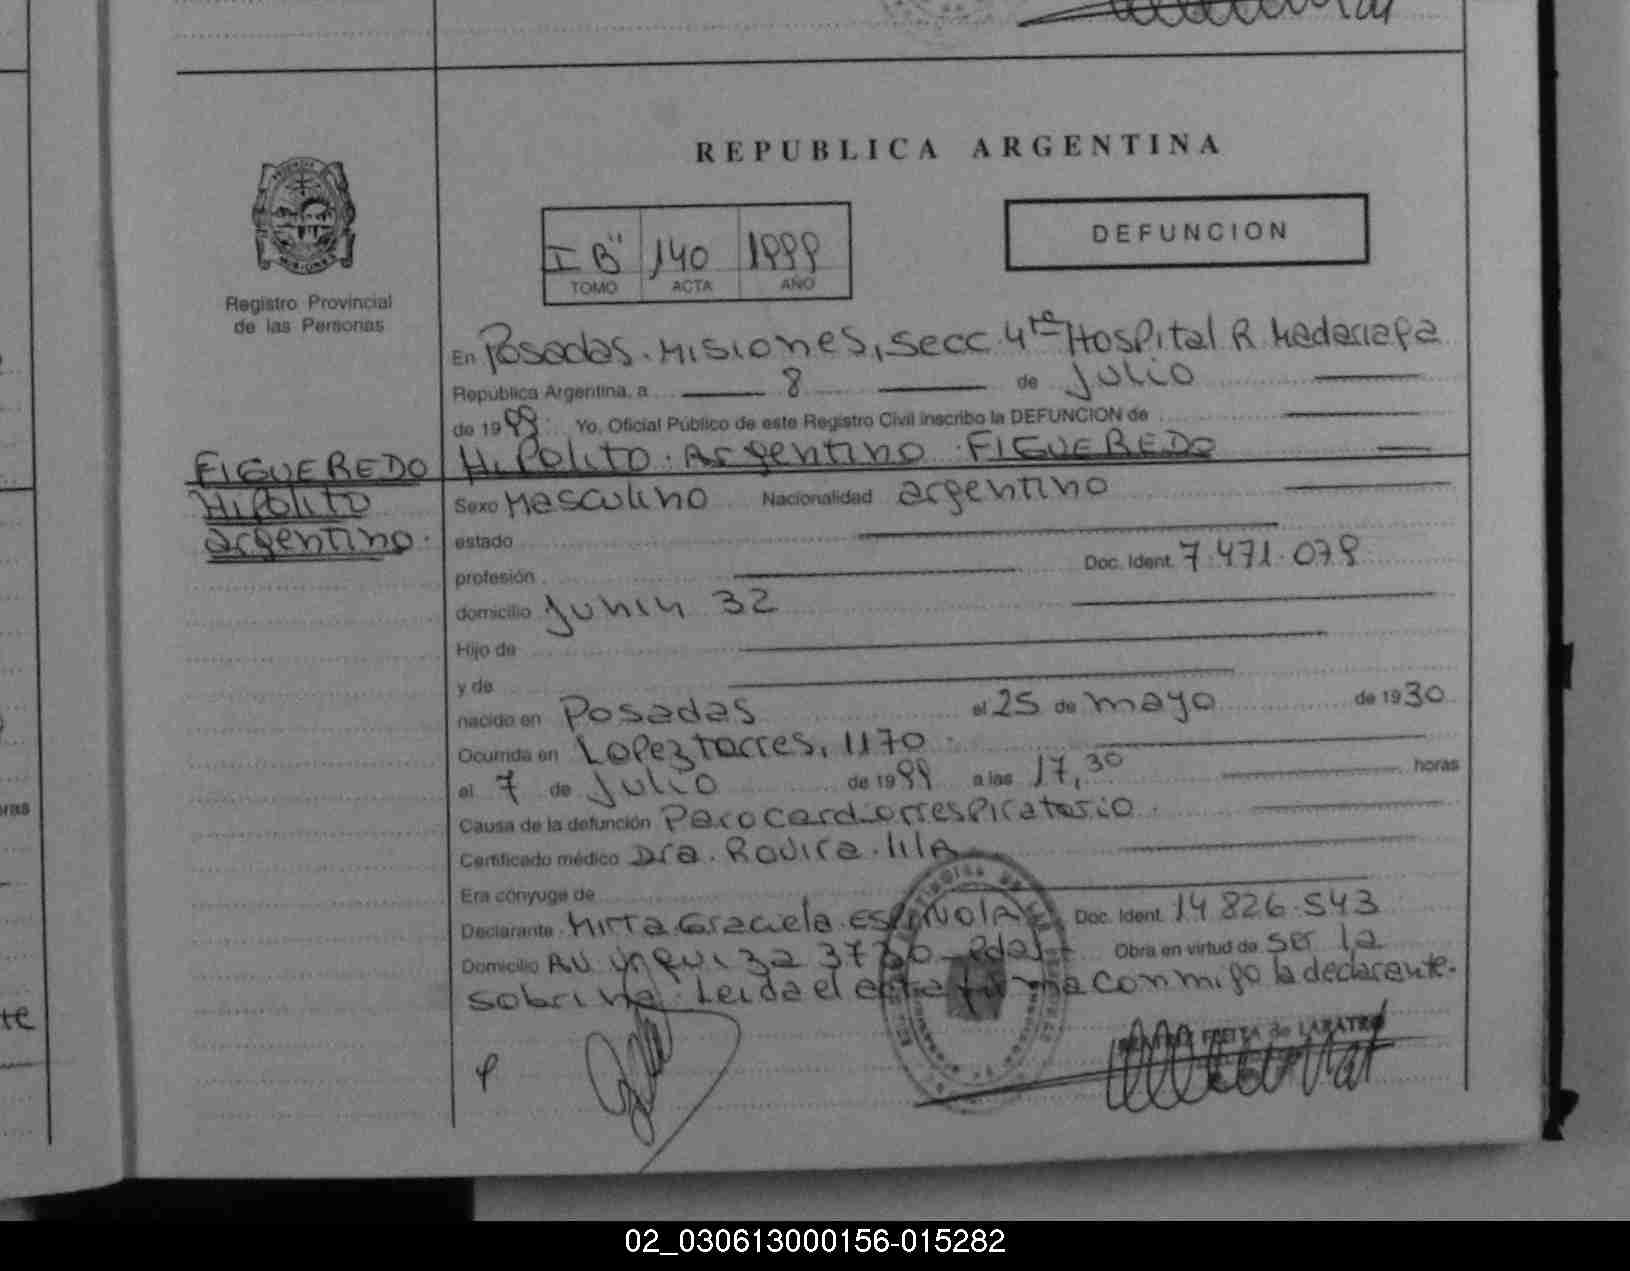 REPUBLICA ARGENTINA
MISIONES
Registro Provincial
de las Personas
I B" 140 1999
TOMO ACTA AÑO
DEFUNCION
En Posadas. Misiones, secc 4ta Hospital R Madariaga
República Argentina, a 8 de Julio
de 1999 Yo, Oficial Público de este Registro Civil inscribo la DEFUNCION de
Hipolito. Argentino. FIGUEREDO
FIGUEREDO
Hipolito
argentino.
Sexo Masculino Nacionalidad argentino
estado
profesión Doc. Ident. 7.471.079
domicilio Junin 32
Hijo de
y de
nacido en Posadas el 25 de mayo de 1930
Ocurrida en Lopez torres, 1170.
el 7 de Julio de 1999 a las 17,30 horas
Causa de la defunción Paro cardiorrespiratorio.
Certificado médico Dra. Rovira. lilA
Era cónyuge de
Declarante Mirta Graciela ESPINOlA Doc. Ident. 14 826.543
Domicilio AV. 37 Pdas Obra en virtud de ser la
sobrina. Leida el acta firma conmigo la declarante.
FREITA de LABATRO
02_030613000156-015282